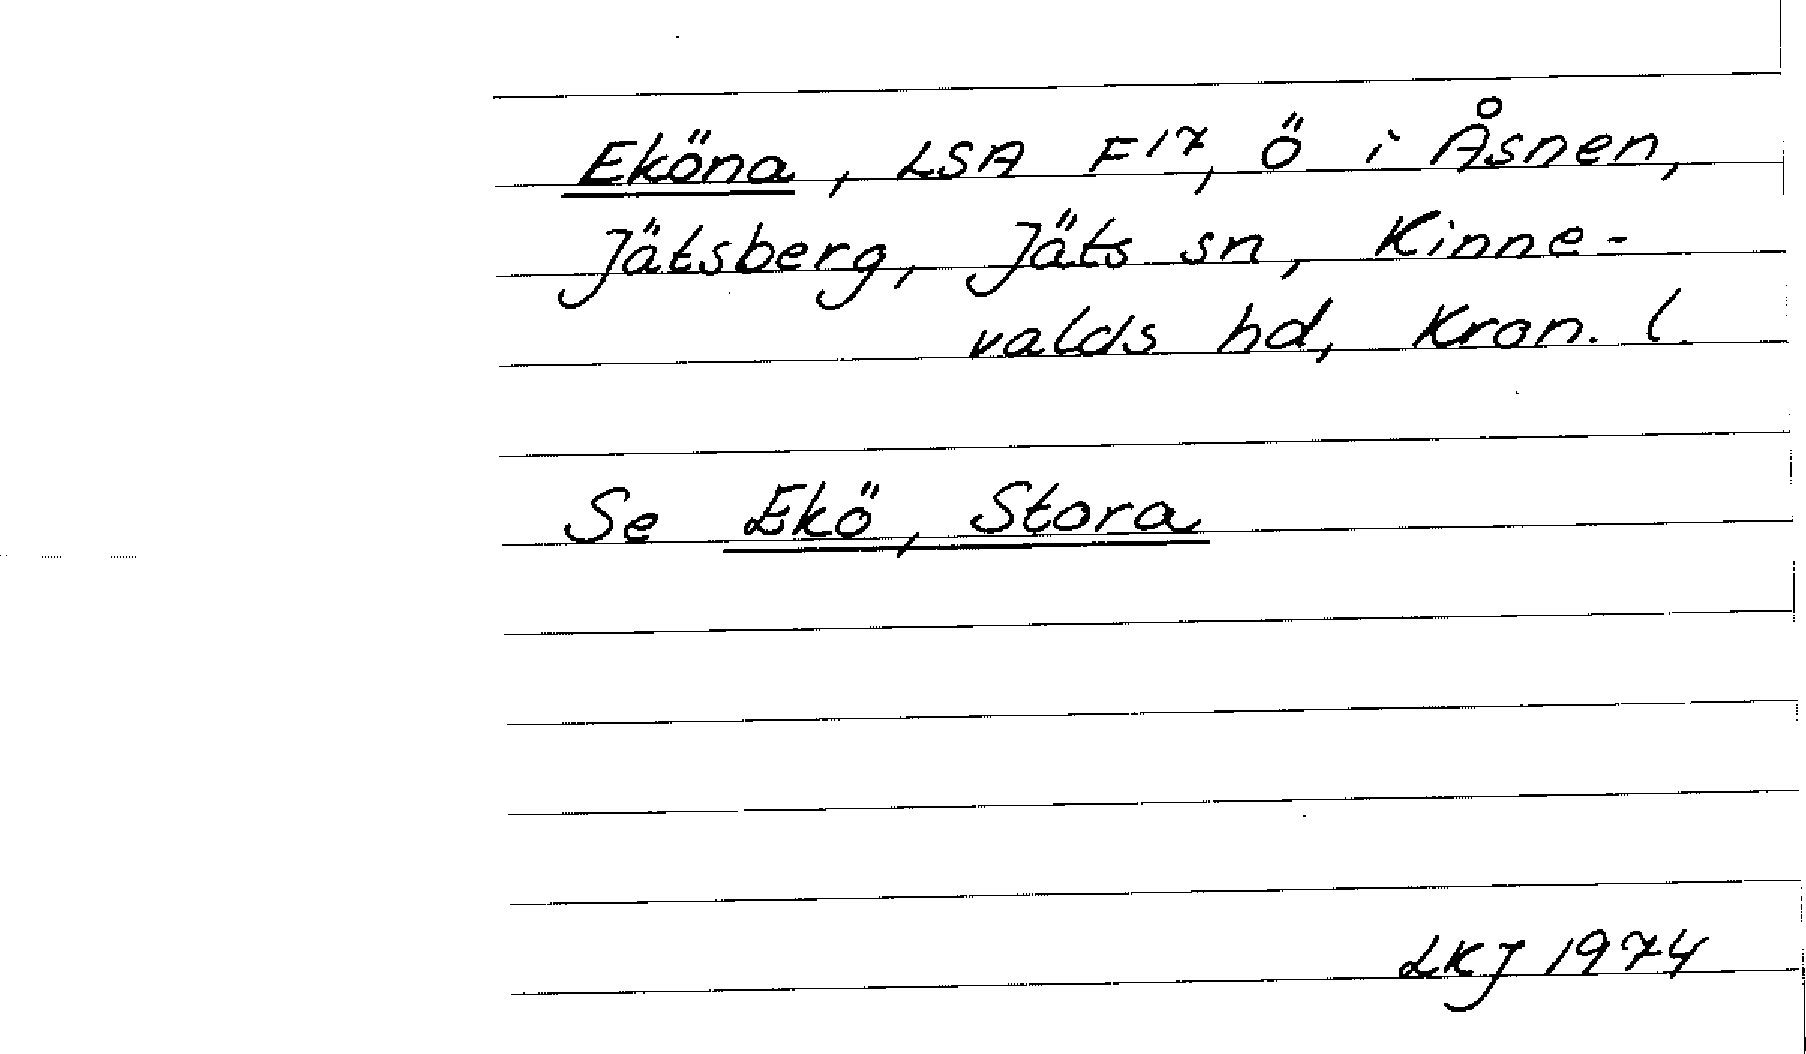 Eköna, LSA F17, ö i Åsnen,
Jätsberg, Jäts sn, Kinne-
valds hd, Kron. l.
Se Ekö, Stora
LKJ 1974